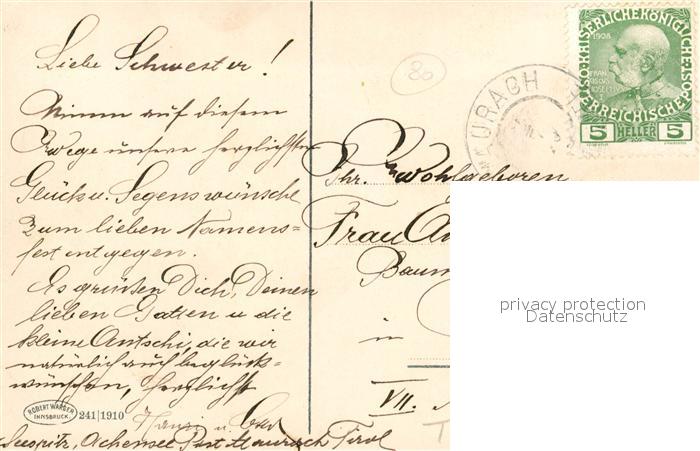 Liebe Schwester!
Nimm auf diesem
Wege unsere herzlichsten
Glück u. Segenswünsche
zum lieben Namens=
fest entgegen.
Es grüssen Dich, Deinen
lieben Gatten u die
kleine Antschi, die wir
natürlich auch beglück=
wünschen, herzlichst
Hansi u.
Seespitz, Achensee Post Maurach Tirol
ROBERT WARGER
INNSBRUCK
241|1910
80
MAURACH
1908
KAISERLICHE KÖNIGLICHE
ÖSTERREICHISCHE
5 HELLER 5
Ihr. Wohlgeboren
Frau
Baum
in
VII.
privacy protection
Datenschutz